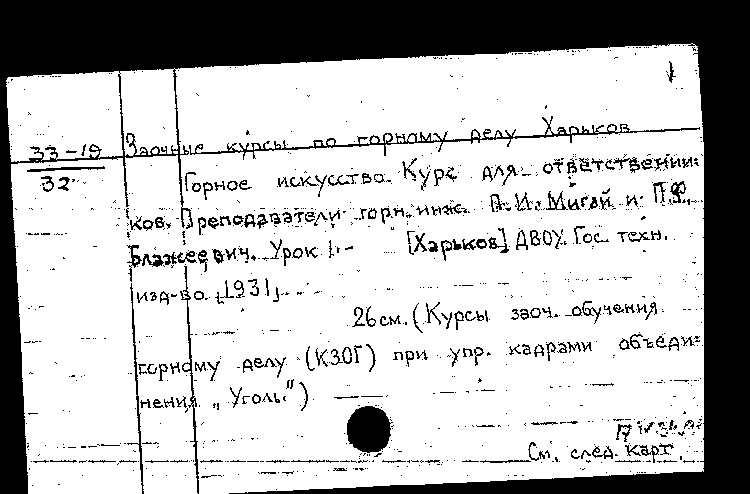 33-19
32
Заочные курсы по горному делу Харьков
Горное искусство. Курс для ответственни=
ков. Преподаватели горн. инж. П. И. Мигай и П.Ф.
Блажеевич. Урок 1.- [Харьков] ДВОУ. Гос. техн.
изд-во. [1931]
26 см. (Курсы заоч. обучения
горному делу (КЗОГ) при упр. кадрами объеди=
нения „Уголь")
См. след. карт.